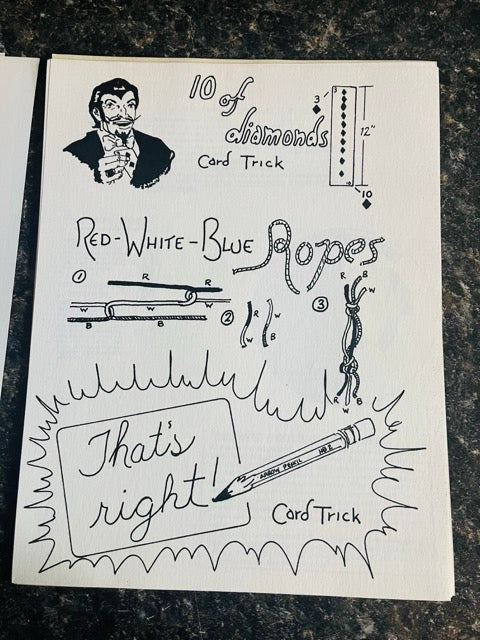 10 of
diamonds
Card Trick
3
3
12"
10
10
RED-WHITE-BLUE Ropes
1
R
R
W
W
W
B
B
2
R
W
W
B
3
R
B
W
R
W
B
That's
right!
#2 ARROW PENCIL NO 2
Card Trick